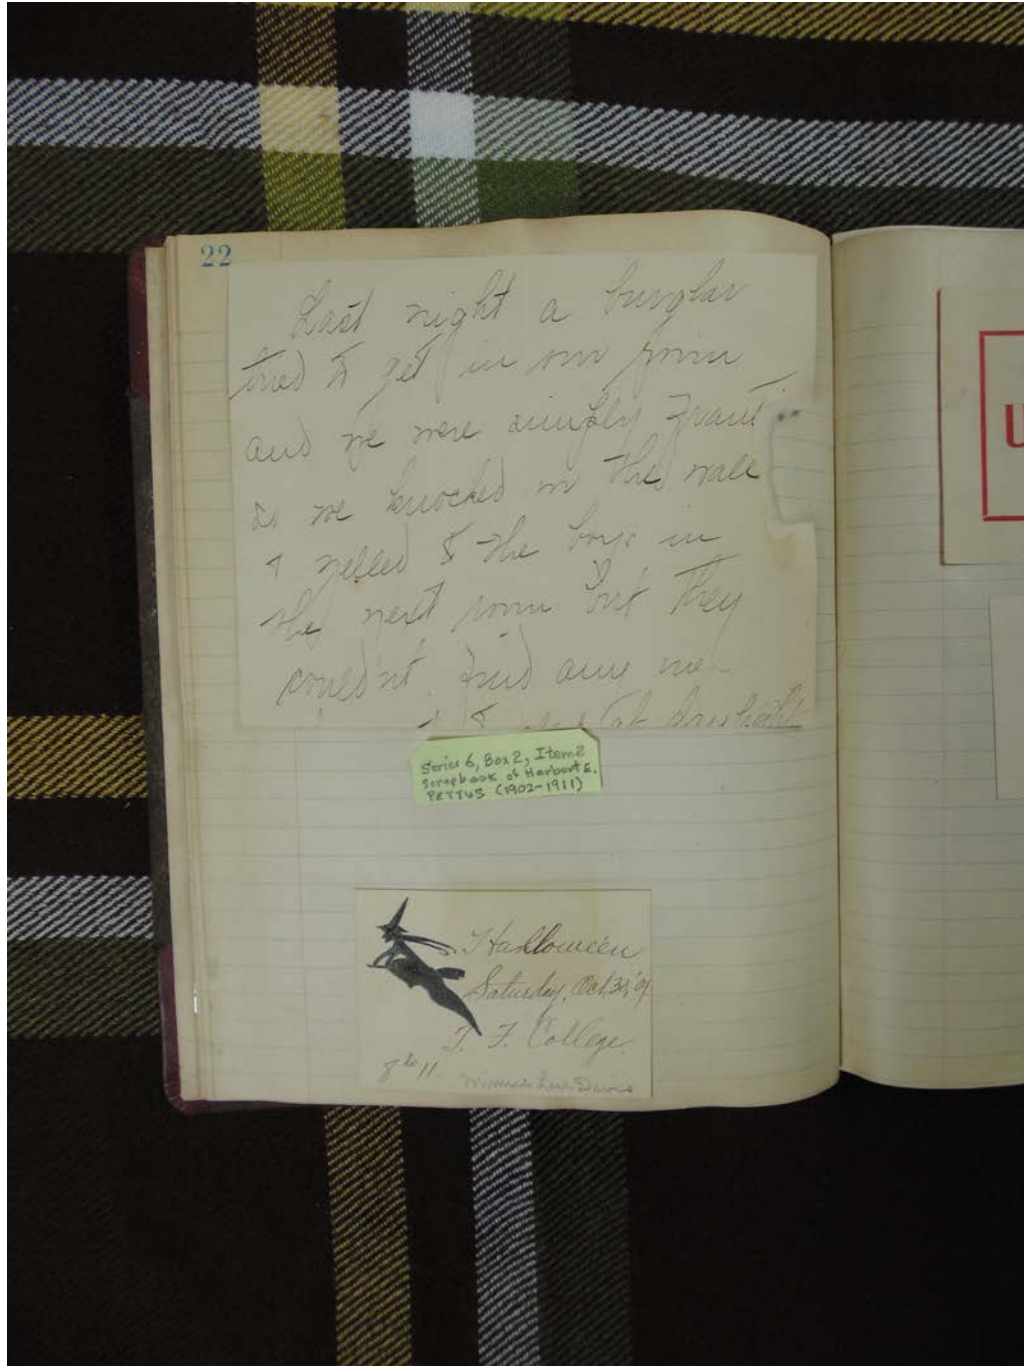 22
Last night a burglar
tried to get in our room
and we were simply frant
so we knocked on the wall
& yelled to the boys in
the next room but they
couldn't find any
Series 6, Box 2, Item 2
Scrapbook of Harbert E.
PETTUS (1902-1911)
Halloween
Saturday, Oct. 30,
T. F. College.
8 to 11
Davis
U